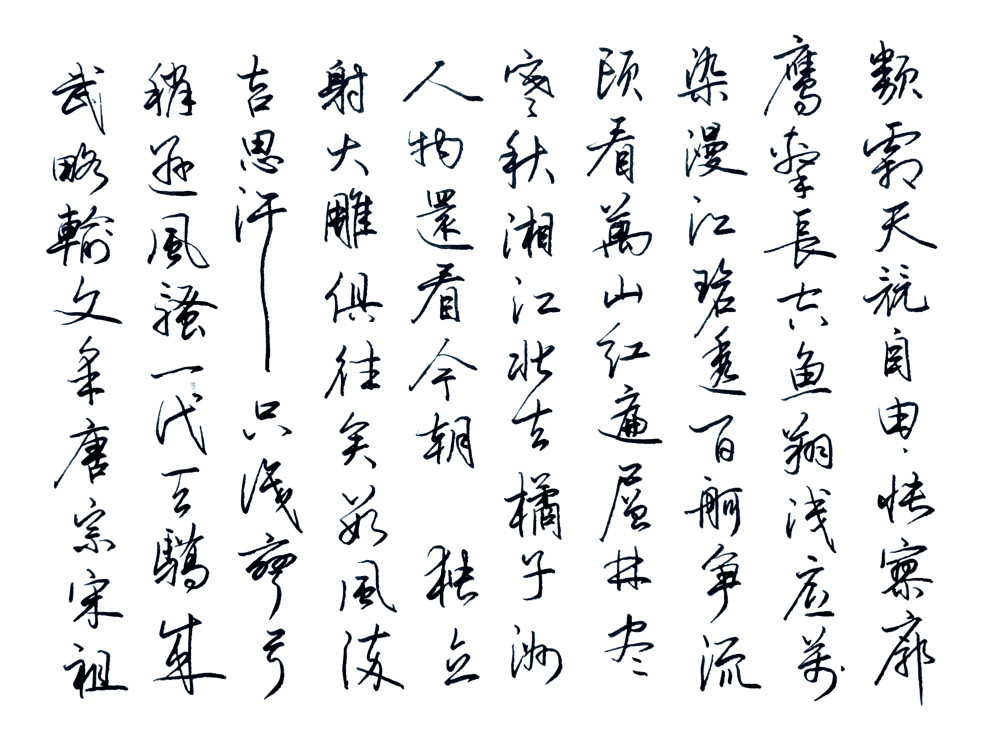 武略輸文采唐宗宋祖
稍遜風騷一代天驕成
吉思汗只識彎弓
射大雕俱往矣數風流
人物還看今朝 独立
寒秋湘江北去橘子洲
頭看萬山紅遍層林尽
染漫江碧透百舸爭流
鷹擊長空魚翔浅底萬
類霜天競自由，悵寥廓